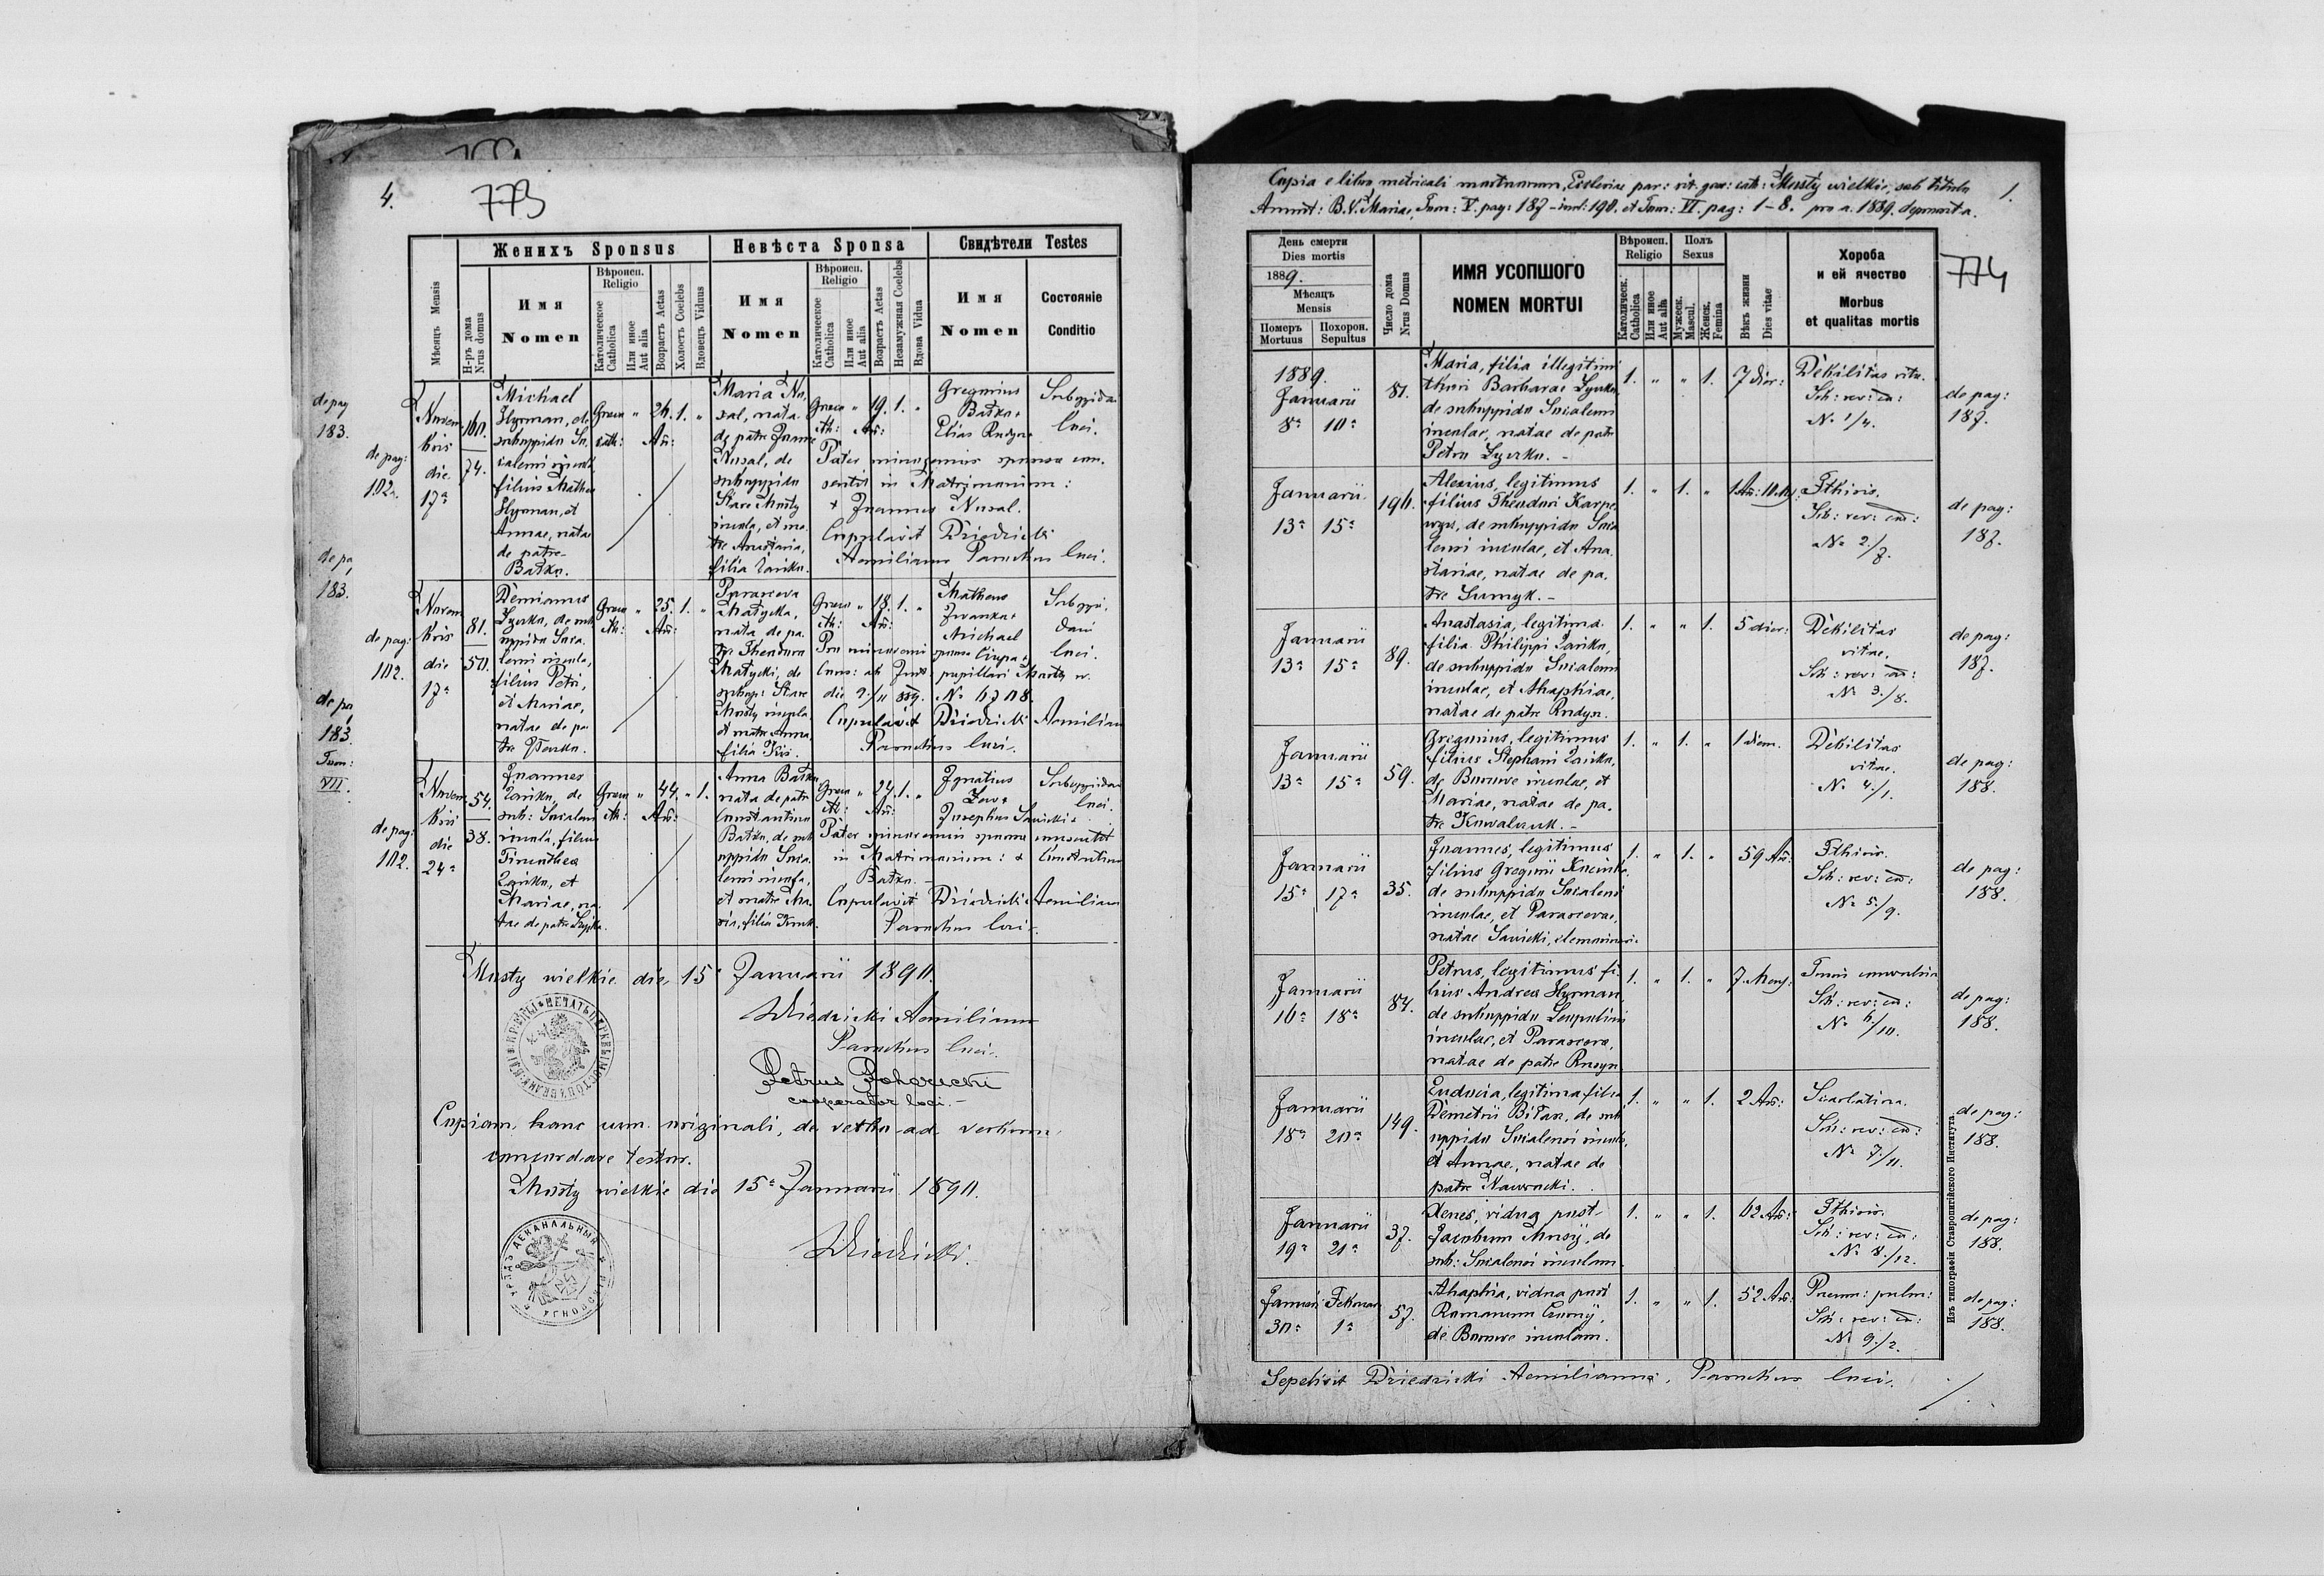 4.
773
Женихъ Sponsus
Невѣста Sponsa
Свидѣтели Testes
Мѣсяцъ Mensis
Н-ръ дома
Nrus domus
Имя
Nomen
Вѣроисп.
Religio
Католическое
Catholica
Или иное
Aut alia
Возрастъ Aetas
Холостъ Coelebs
Вдовецъ Viduus
Имя
Nomen
Вѣроисп.
Religio
Католическое
Catholica
Или иное
Aut alia
Возрастъ Aetas
Незамужная Coelebs
Вдова Vidua
Имя
Nomen
Состояніе
Conditio
de pag
183.
de pag:
102.
Novem
bris
die
17a
160.
74.
Michael
Hyrman, de
suboppido Su
calensi incola
filius Mathei
Hyrman, et
Annae, natae
de patre
Batko.
Graeco
cath:
"
24.
An:
1.
"
Maria No
sal, nata
de patre Joanne
Nosal, de
suboppido
Stare Mosty
incola, et ma
tre Anastasia,
filia Zaiko.
Graeco
cth:
"
19.
An:
1.
"
Gregorius
Batko +
Elias Rudyn +
Suboppidani
loci.
Pater minorennis sponsae con
sentit in Matrimonium:
+ Joannes Nosal.
Copulavit Dziedzicki
Aemilianus Parochus loci.
de pa
183.
de pag:
102.
Novem
bris
die
17a
81.
50.
Demianus
Lyczko, de sub
oppido Suca
lensi incola,
filius Petri,
et Mariae,
natae de pa
tre
Graeco
cth:
"
25.
An:
1.
"
Parasceva
Matycka,
nata de pa
tre Theodoro
Matycki, de
subop: Stare
Mosty incola
et matre Anna
filia Kis.
Graeco
cth:
"
18.
An:
1.
"
Matheus
Iwanko +
Michael
Suboppi
dani
loci.
Pro minorenni sponsa
Cons: ab Jud: pupillari Mosty w.
die 9/11 889. No 6708.
Copulavit Dziedzicki Aemilian
Parochus loci.
de pa
183.
Tom:
VII.
de pag:
102.
Novem
bris
die
24a
54.
38.
Joannes
Zaiko, de
sub: Sucalensi
incola, filius
Timothea
Zaiko, et
Mariae, na
tae de patre
Graeco
cth:
"
44.
An:
"
1.
Anna Batko
nata de patre
Constantino
Batko, de sub
oppido Suca
lensi incola,
et matre Ma
ria, filia Kruk.
Graeco
cth:
"
24.
An:
1.
"
Ignatius
Josephus Sawicki +
Suboppidani
loci.
Pater minorennis sponsae consentit
in Matrimonium: + Constantinus
Batko. –
Copulavit Dziedzicki Aemilian
Parochus loci.
Mosty wielkie die 15a Januarii 1890.
Dziedzicki Aemilianus
Parochus loci.
Petrus Pohorecki
cooperator loci. –
Copiam hanc cum originali, de verbo ad verbum
concordare testor.
Mosty wielkie die 15a Januarii 1890.
Dziedzicki.
Copia e libro metricali mortuorum, Ecclesiae par: rit. graec: cath: Mosty wielkie, sub titulo
Annunt: B. V. Mariae, Tom: V. pag: 187 – incl: 190. et Tom: VI. pag: 1 – 8. pro a. 1889. deprompta.
1.
774
День смерти
Dies mortis
1889.
Мѣсяцъ
Mensis
Померъ
Mortuus
Похорон.
Sepultus
Число дома
Nrus Domus
ИМЯ УСОПШОГО
NOMEN MORTUI
Вѣроисп.
Religio
Католическ.
Catholica
Или иное
Aut alia
Полъ
Sexus
Мужеск.
Mascul.
Женск.
Femina
Вѣкъ жизни
Dies vitae
Хороба
и ей ячество
Morbus
et qualitas mortis
1889.
Januarii
8a 10a
81.
Maria, filia illegitimi
thori Barbarae Lyczko,
de suboppido Sucalensi
incolae, natae de patre
Petro Lyczko. –
1. " " 1.
7 dier:
Debilitas vitae.
Sch: rev: cad:
No 1/4.
de pag:
187.
Januarii
13a 15a
190.
Alexius, legitimus
filius Theodori Karpo
wycz, de suboppido Suca
lensi incolae, et Ana
stasiae, natae de pa
tre Sumyk. –
1. " 1. "
1 An: 10 M:
Pthisis.
Sch: rev: cad:
No 2./7.
de pag:
187.
Januarii
13a 15a
89.
Anastasia, legitima
filia Philippi Zaiko,
de suboppido Sucalensi
incolae, et Ahaphiae,
natae de patre Rudyn.
1. " " 1.
5 dier:
Debilitas
vitae.
Sch: rev: cad:
No 3./8.
de pag:
187.
Januarii
13a 15a
59.
Gregorius, legitimus
filius Stephani Zaiko,
de Borowe incolae, et
Mariae, natae de pa
tre Kowalczuk. –
1. " 1. "
1 diem.
Debilitas
vitae.
No 4./1.
de pag:
188.
Januarii
15a 17a
35.
Joannes, legitimus
filius Gregorii
de suboppido Sucalensi
incolae, et Parascevae,
natae Sawicki,
1. " 1. "
59 An:
Pthisis.
Sch: rev: cad:
No 5./9.
de pag:
188.
Januarii
16a 18a
84.
Petrus, legitimus fi
lius Andrea Hyrman,
de suboppido Leopoliensi
incolae, et Parasceva,
natae de patre
1. " 1. "
7. Mens:
Tussis convulsiva
Sch: rev: cad:
No 6/10.
de pag:
188.
Januarii
18a 20a
149.
Eudocia, legitima filia
Demetrii Bilan, de sub
oppido Sucalensi incola,
et Annae, natae de
patre Nawrocki.
1. " " 1.
2 An:
Scarlatina.
Sch: rev: cad:
No 7./11.
de pag:
188.
Januarii
19a 21a
37.
Xenes, vidua post
Jacobum
sub: Sucalensi incolam.
1. " " 1.
62 An:
Pthisis.
Sch: rev: cad:
No 8./12.
de pag:
188.
Januarii Februarii
30a 1a
57.
Ahaphia, vidua post
Romanum Czornij,
de Borowe incolam.
1. " " 1.
52 An:
Pneum: pulm:
Sch: rev: cad:
No 9./2.
de pag:
188.
Sepelivit Dziedzicki Aemilianus, Parochus loci.
Изъ типографіи Ставропигійского Института